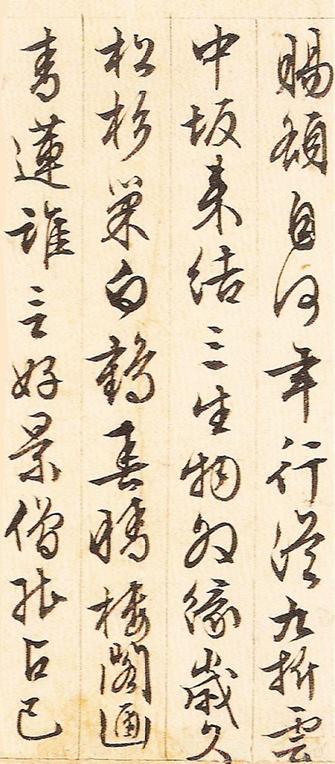 賜額自何年行從九折雲
中坂來結三生物外緣歲久
松杉巢白鶴春晴樓閣通
青蓮誰言好景僧能占已